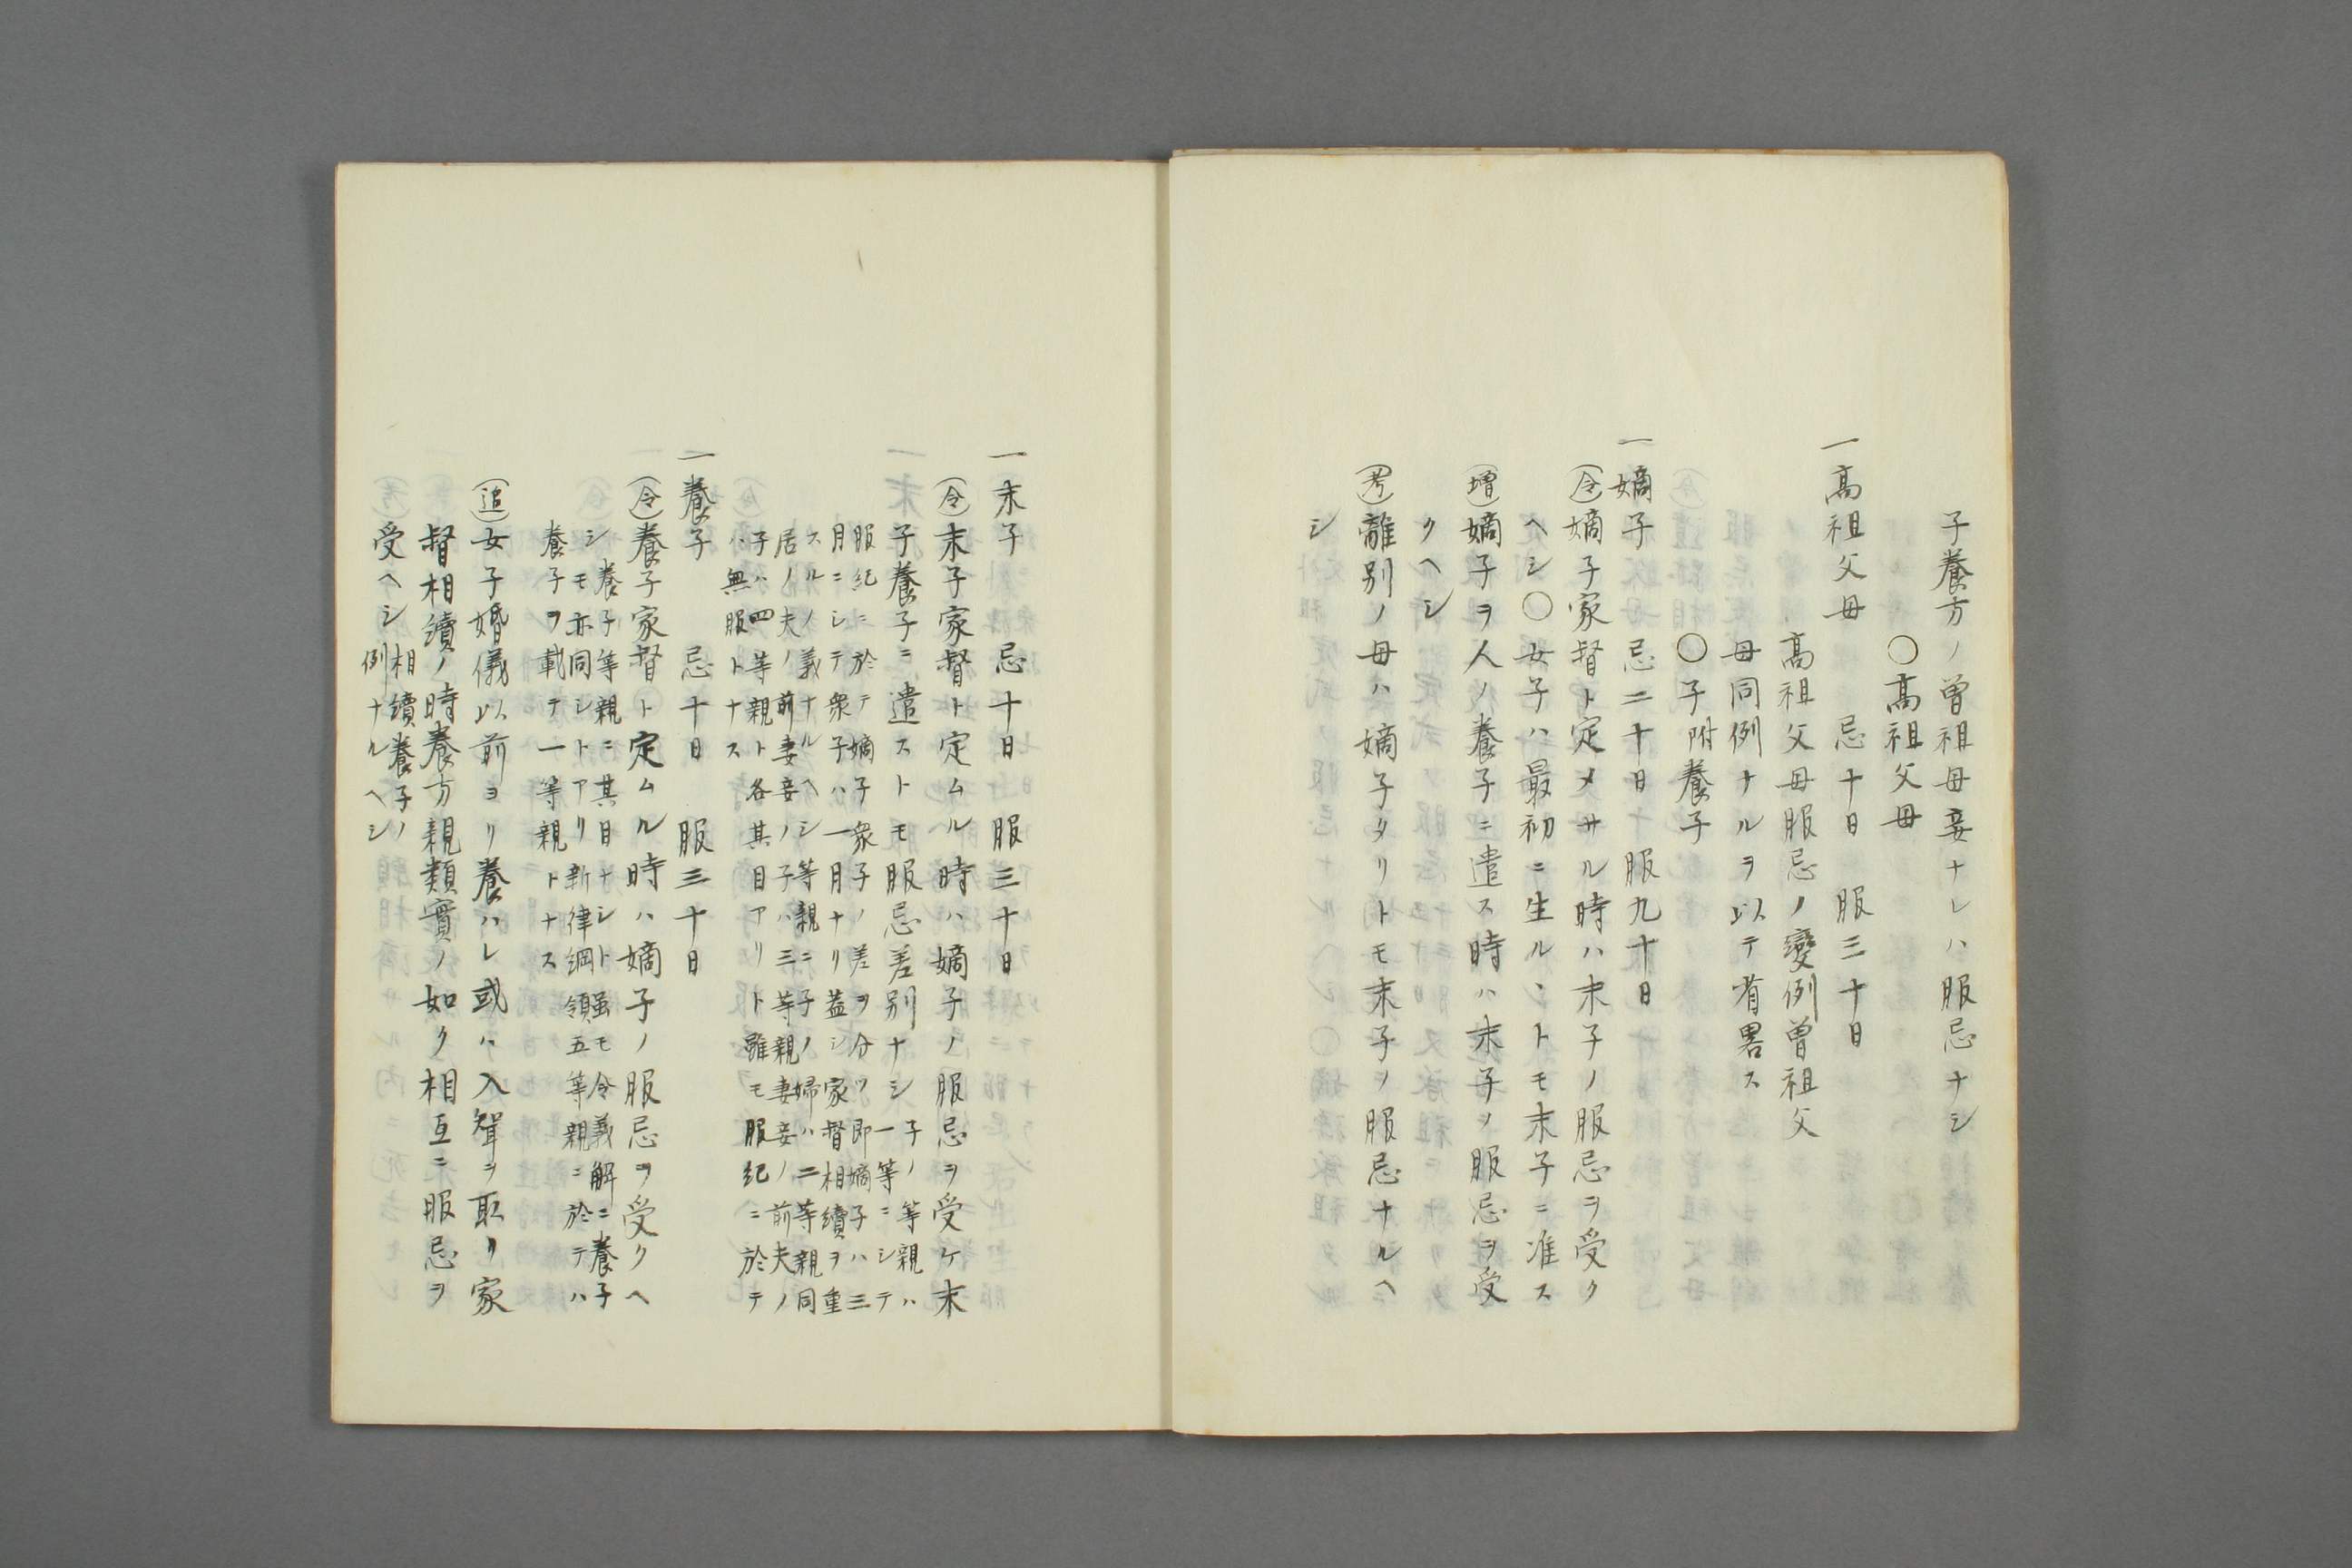 子養方ノ曽祖母妾ナレハ服忌ナシ
〇高祖父母
一高祖父母　忌十日　服三十日
高祖父母服忌ノ變例曽祖父
母同例ナルヲ以テ省畧ス
〇子附養子
一嫡子　忌二十日　服九十日
(令)嫡子家督ト定メサル時ハ末子ノ服忌ヲ受ク
ヘシ〇女子ハ最初ニ生ルヽトモ末子ニ准ス
(増)嫡子ヲ人ノ養子ニ遣ス時ハ末子ノ服忌ヲ受
クヘシ
(考)離別ノ母ハ嫡子タリトモ末子ノ服忌ナルヘ
シ
一末子　忌十日　服三十日
(令)末子家督ト定ムル時ハ嫡子ノ服忌ヲ受ケ末
子養子ニ遣ストモ服忌差別ナシ
子ノ等親ハ
一等ニシテ
服紀ニ於テ嫡子衆子ノ差ヲ分ツ即嫡子ハ三
月ニシテ衆子ハ一月ナリ蓋シ家督相續ヲ重
スルノ義ナルヘシ等親ニ子ノ婦ハ二等親同
居ノ夫ノ前妻妾ノ子ハ三等親妻妾ノ前夫ノ
子ハ四等親ト各其目アリト雖モ服紀ニ於テ
ハ無服トナス
一養子　忌十日　服三十日
(令)養子家督ト定ムル時ハ嫡子ノ服忌ヲ受クヘ
シ
養子等親ニ其目ナシト强モ令義解ニ養子
モ亦同シトアリ新律綱領五等親ニ於テハ
養子ヲ載テ一等親トナス
(追)女子婚儀以前ヨリ養ハレ或ハ入聟ヲ取リ家
督相續ノ時養方親類實ノ如ク相互ニ服忌ヲ
受ヘシ
相續養子ノ
例ナルヘシ